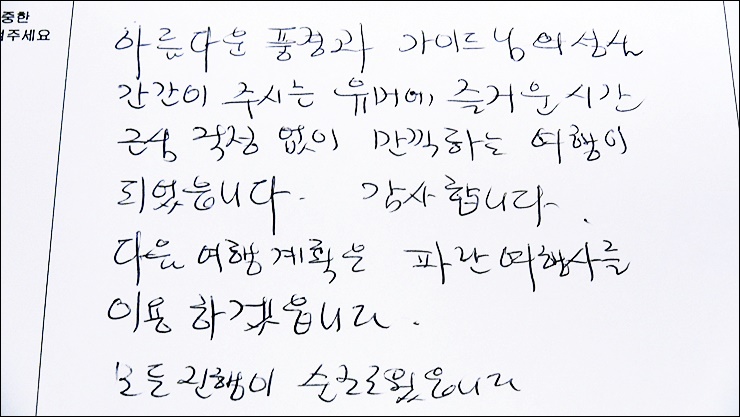 중한
겨주세요
아름다운 풍경과 가이드님의 성실
간간이 주시는 유머에 즐거운 시간
근심 걱정 없이 만끽하는 여행이
되었읍니다. 감사합니다.
다음 여행 계획은 파란여행사를
이용 하겠읍니다.
모든 진행이 순조로웠읍니다